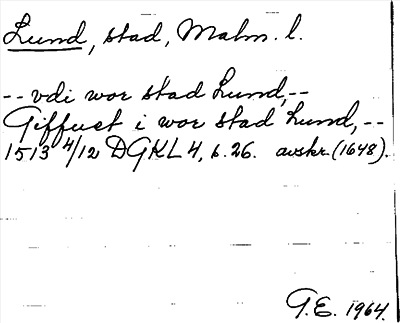 Lund, stad, Malm. l.
-- vdi wor stad Lund, --
Giffuet i wor stad Lund, --
1513 4/12 DGKL 4, s. 26. avskr. (1648).
G.E. 1964.